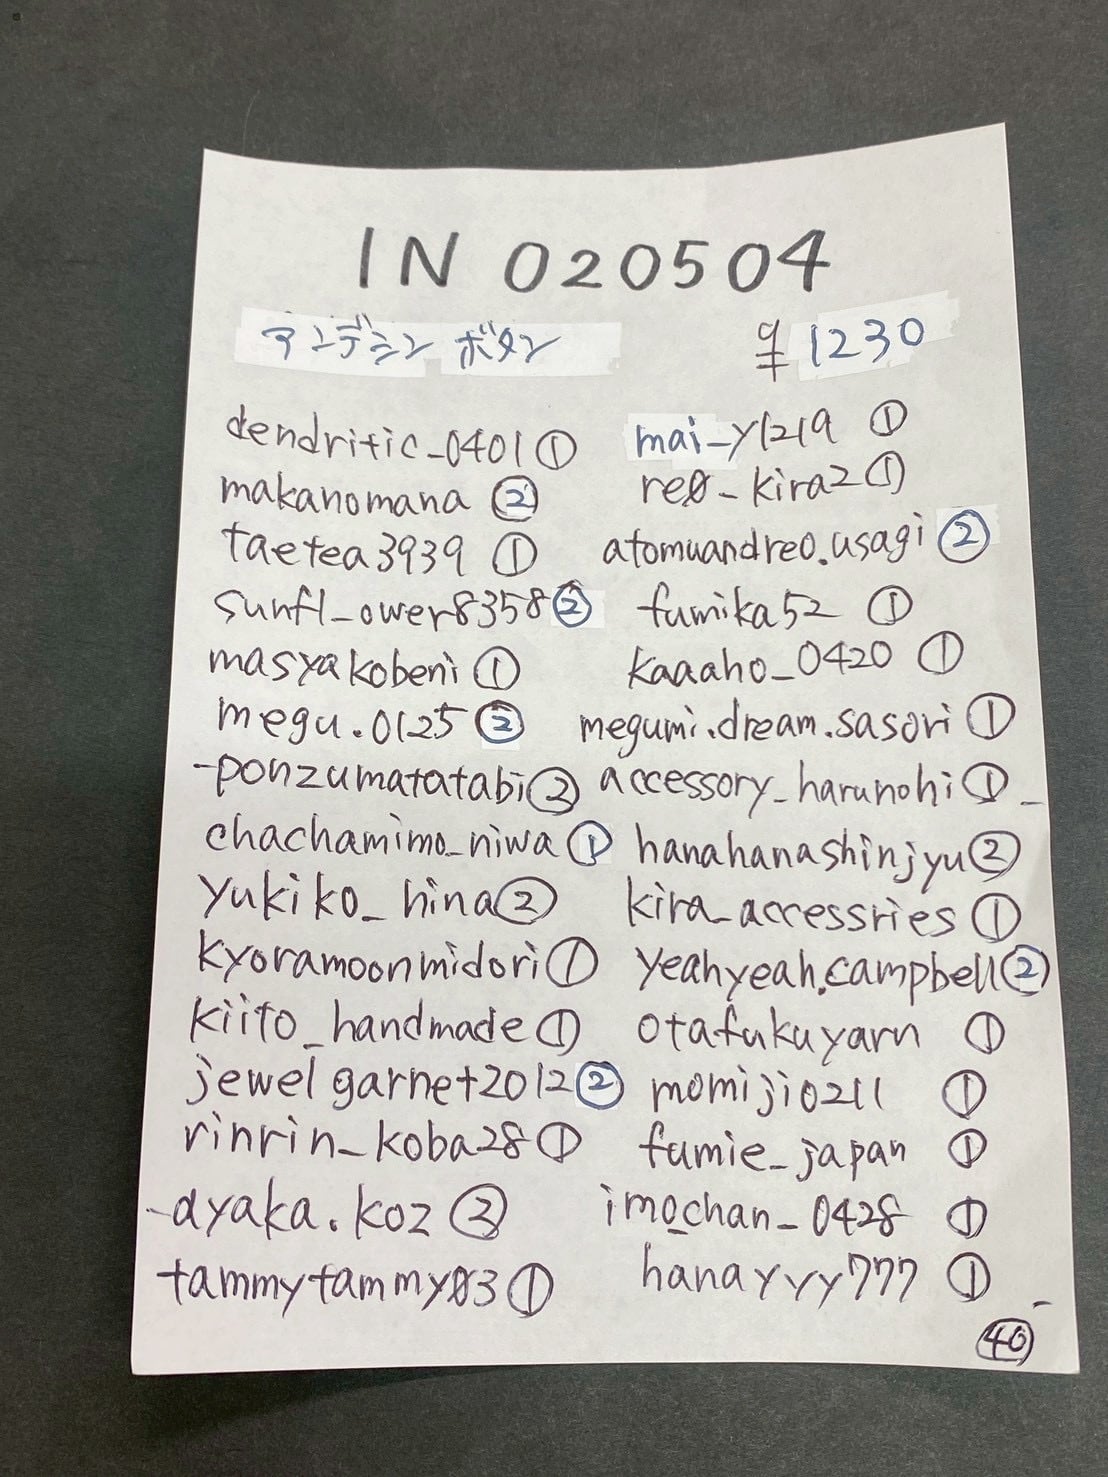 IN 020504
アンデシン ボタン
¥1230
dendritic_0401 ①
makanomana ②
taetea3939 ①
sunfl_ower8358 ②
masyakobeni ①
megu.0125 ②
-ponzumatatabi ②
chachamimo_niwa ①
yukiko_hina ②
kyoramoonmidori ①
kiito_handmade ①
jewelgarnet2012 ②
rinrin_koba28 ①
-ayaka.koz ②
tammytammy03 ①
mai_y1219 ①
re0_kira2 ①
atomuandreo.usagi ②
fumika52 ①
kaaaho_0420 ①
megumi.dream.sasori ①
accessory_harunohi ① _
hanahanashinjyu ②
kira_accessries ①
yeahyeah.campbell ②
otafukuyarn ①
momiji0211 ①
fumie_japan ①
imo_chan_0428 ①
hanayyy777 ①
㊵